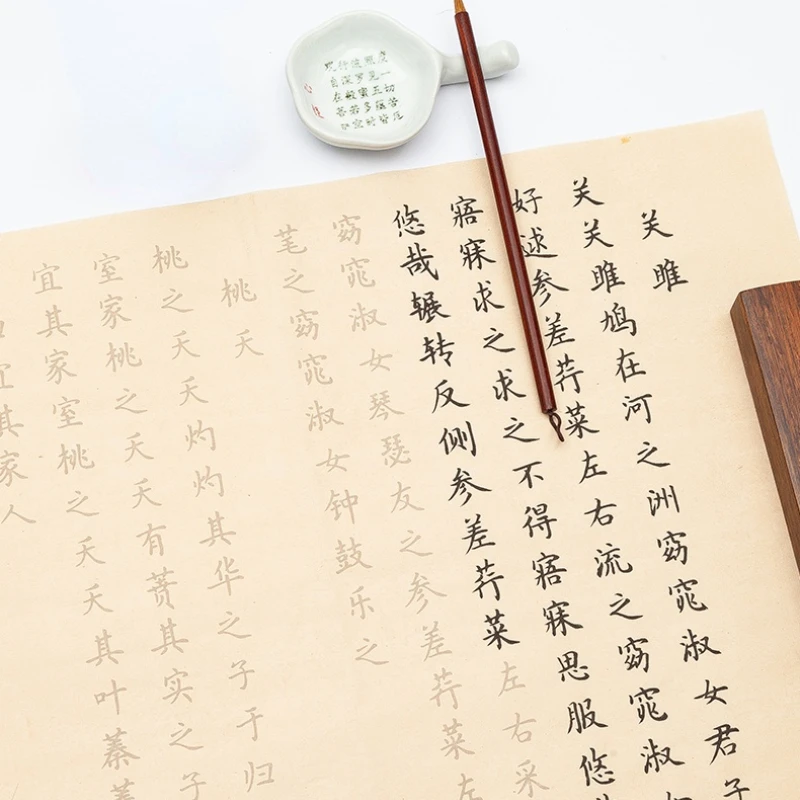 关雎
关关雎鸠在河之洲窈窕淑女君子
好逑参差荇菜左右流之窈窕淑女
寤寐求之求之不得寤寐思服悠
悠哉辗转反侧参差荇菜左右采
窈窕淑女琴瑟友之参差荇菜左
芼之窈窕淑女钟鼓乐之
桃夭
桃之夭夭灼灼其华之子于归
室家桃之夭夭有蕡其实之子
宜其家室桃之夭夭其叶蓁蓁
宜其家人